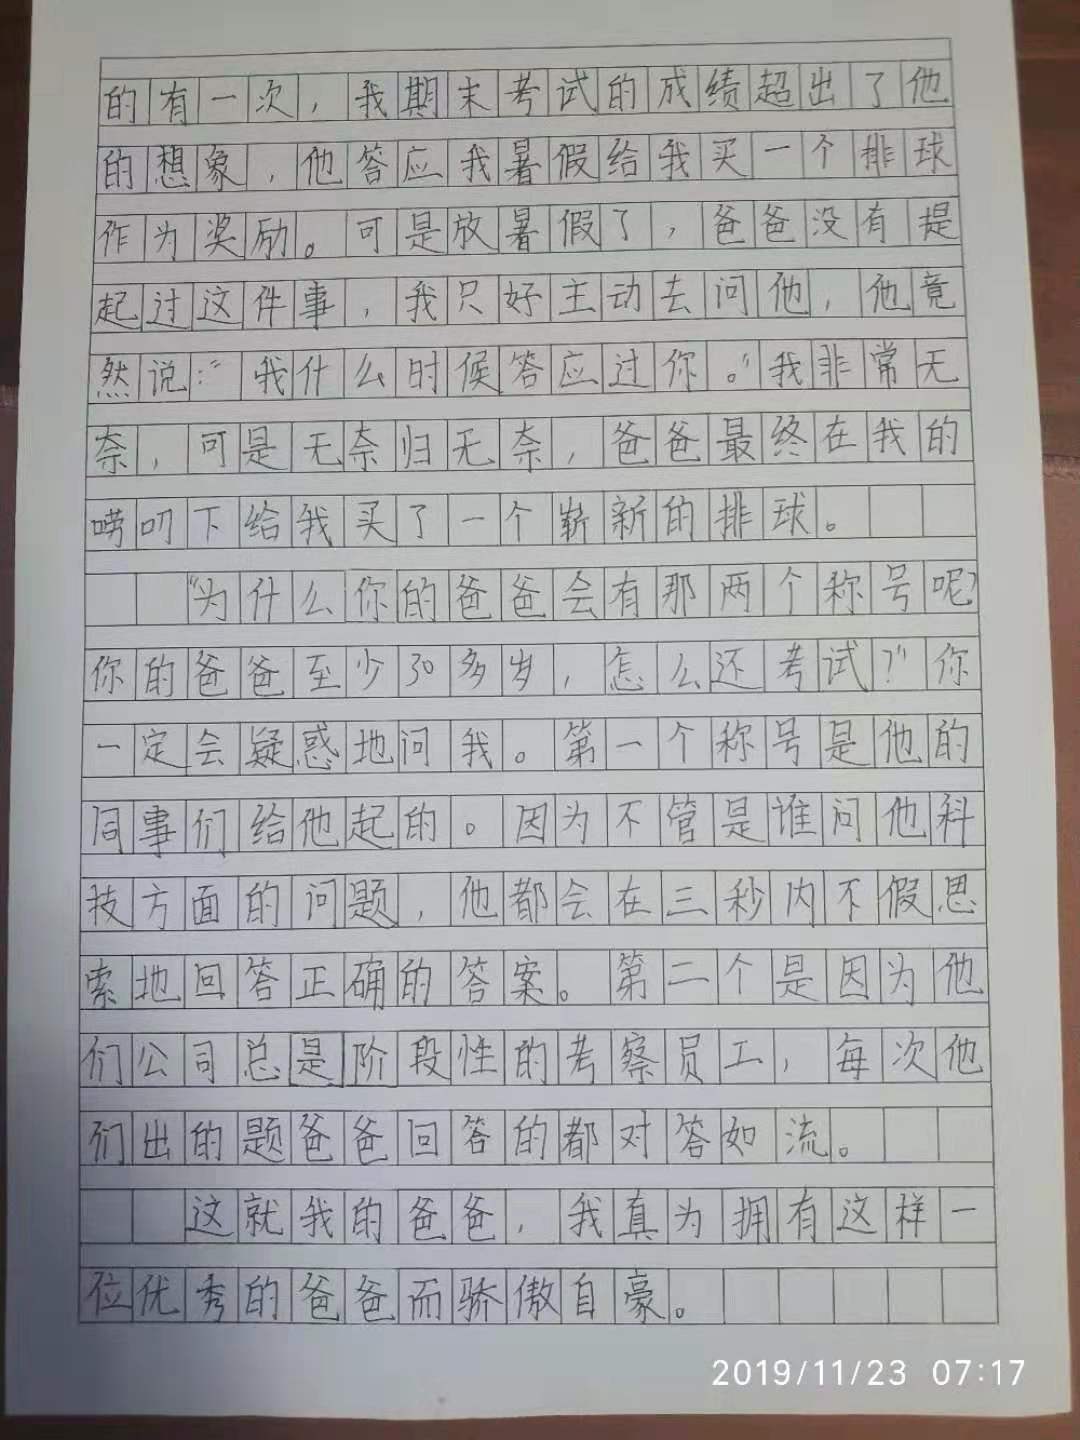 的有一次，我期末考试的成绩超出了他
的想象，他答应我暑假给我买一个排球
作为奖励。可是放暑假了，爸爸没有提
起过这件事，我只好主动去问他，他竟
然说：“我什么时候答应过你。”我非常无
奈，可是无奈归无奈，爸爸最终在我的
唠叨下给我买了一个崭新的排球。
“为什么你的爸爸会有那两个称号呢？
你的爸爸至少30多岁，怎么还考试？”你
一定会疑惑地问我。第一个称号是他的
同事们给他起的。因为不管是谁问他科
技方面的问题，他都会在三秒内不假思
索地回答正确的答案。第二个是因为他
们公司总是阶段性的考察员工，每次他
们出的题爸爸回答的都对答如流。
这就我的爸爸，我真为拥有这样一
位优秀的爸爸而骄傲自豪。
2019/11/23 07:17